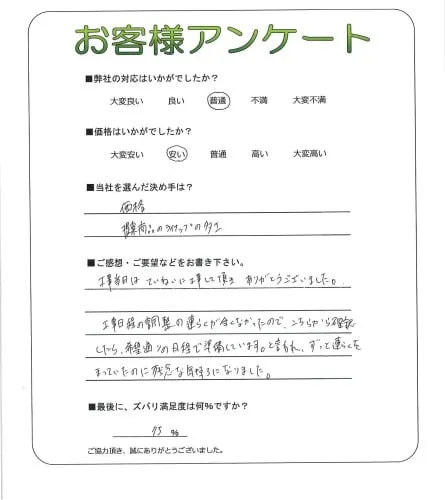 お客様アンケート
■弊社の対応はいかがでしたか?
大変良い 良い 普通 不満 大変不満
■価格はいかがでしたか?
大変安い 安い 普通 高い 大変高い
■当社を選んだ決め手は?
価格
提案商品のラインナップの多さ
■ご感想・ご要望などをお書き下さい。
工事当日はていねいに工事して頂き ありがとうございました。
工事日程の調整の連らくが全くなかったので、こちらから確認
したら、希望通りの日程で準備しています。と言われ、ずっと連らくを
まっていたのに残念な気持ちになりました。
■最後に、ズバリ満足度は何%ですか?
75 %
ご協力頂き、誠にありがとうございました。